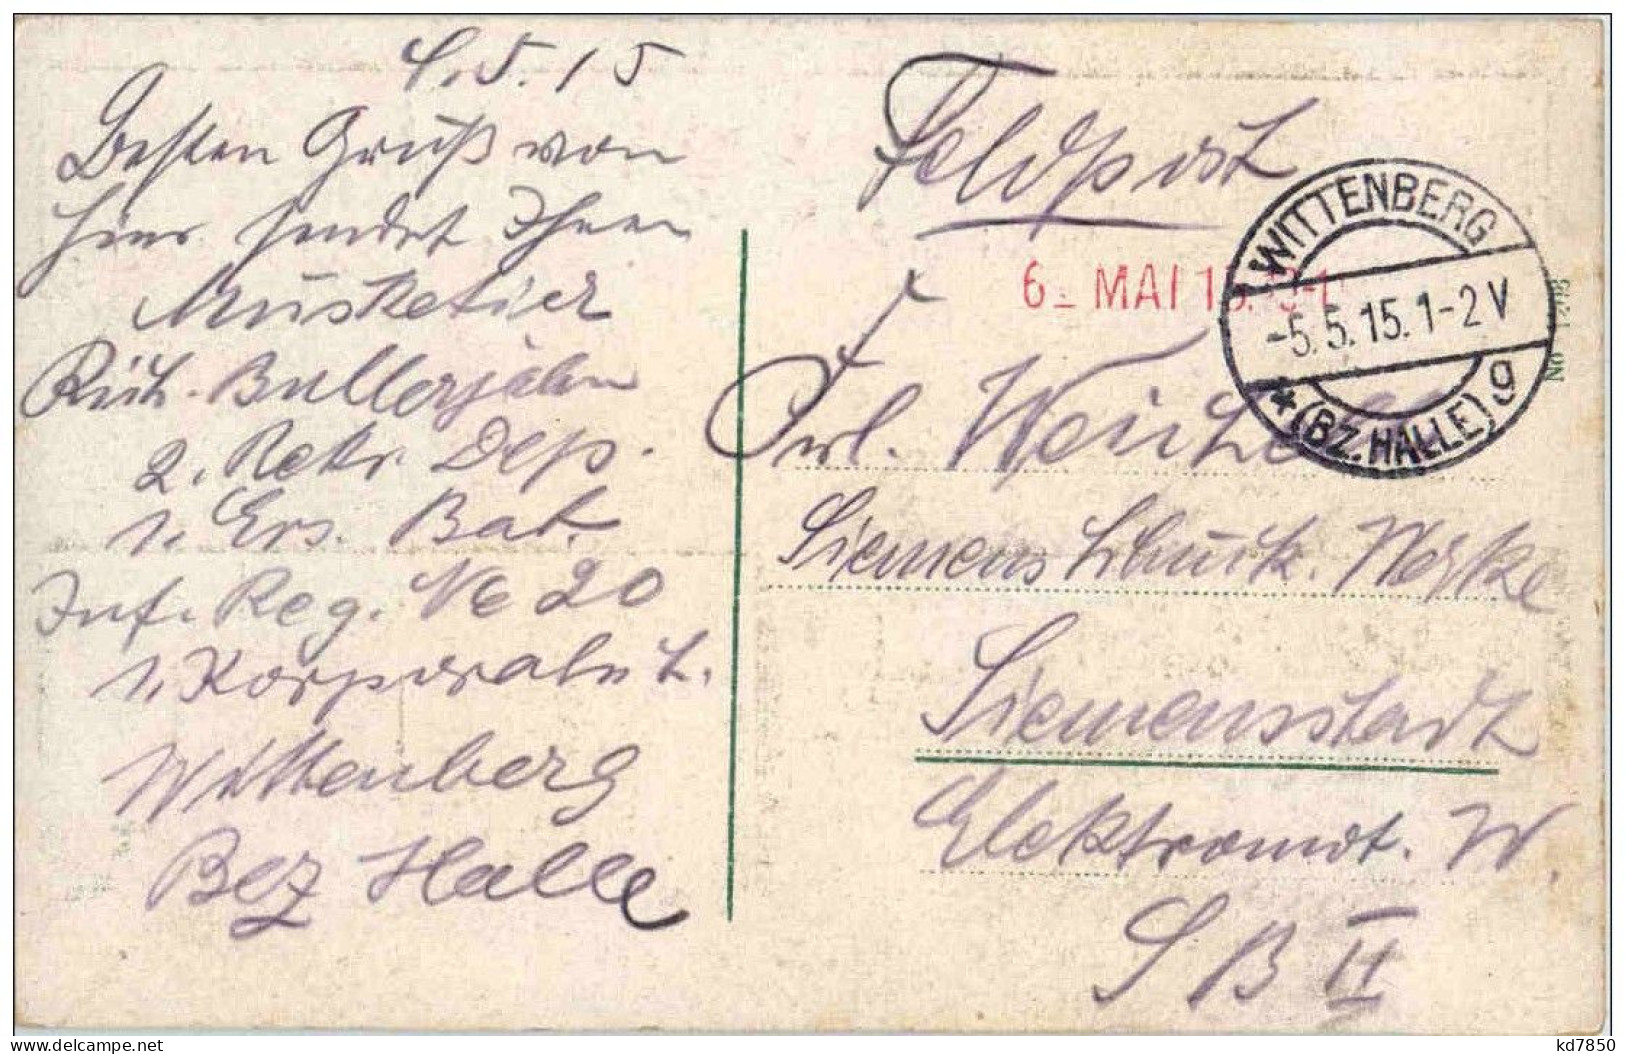 5. 15
Besten Gruß von
hier sendet Ihnen
Musketier
Rich. Bullerjahn
2. Rekr. Dep.
1. Ers. Bat.
Inf. Reg. No 20
1. Korporalscht.
Wittenberg
Bez Halle
Feldpost
WITTENBERG
-5.5.15.1-2V
* (BZ. HALLE) g
6_ MAI 15.
Frl.
Siemens Schuck. Werke
Siemensstadt
Elektromot. W.
S B II
No
kd7850